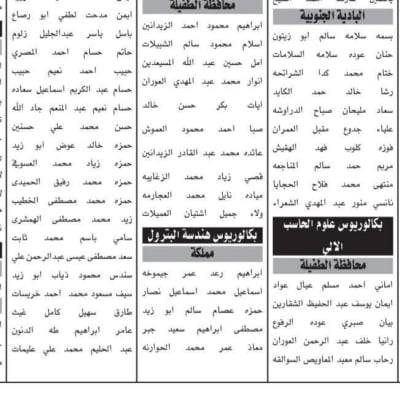 البادية الجنوبية
بسمه سلامه سالم ابو زيتون
حنان عوده سلامه السلامات
ختام محمد كدا الشراتحه
رشا خالد حمد الكايد
سعاد مليحان صباح الدراوشه
علياء جدوع مقبل العمران
فوزه كلوب فهد الهقيش
مريم حمد سالم المناجعه
منتهى محمد فلاح الحجايا
نانسي منور عبد المهدي الشعراء
بكالوريوس علوم الحاسب
الالي
محافظة الطفيلة
اماني احمد مسلم عيال عواد
ايمان يوسف عبد الحفيظ الشقارين
بيان صبري عوده الرفوع
رانيا خلف عبد الرحمن العوران
رحاب سالم معبد المعاويص السوالقه
محافظة الطفيلة
ابراهيم محمود احمد الزيدانين
اسلام محمود سالم الشبيلات
امل حسين عبد الله المسيعدين
انوار محمد عبد المهدي العوران
ايات بكر حسن خالد
صبا احمد محمود العموش
عائده محمد عبد القادر الزيدانين
قصي زياد محمد الزغاييه
مياده نايل محمد العجارمه
ولاء جميل اشتيان العميلات
بكالوريوس هندسة البترول
مملكة
ابراهيم رعد عمر جيموخه
اسماعيل محمد اسماعيل نصار
حمزه عصام سالم ابو زيد
مصطفى ابراهيم سعيد جبر
معاذ عمر محمد الحوارنه
ايمن مدحت لطفي ابو رصاع
باسل ياسر عبدالجليل زلوم
حاتم حسام احمد المصري
حبيب احمد نعيم حبيب
حسام عبد الكريم اسماعيل سعاده
حسام نعيم عبد المنعم جاد الله
حسن محمد علي حسنين
حمزه خالد عوض ابو زيد
حمزه زياد محمد العسوفي
حمزه محمد رفيق الحميدى
حمزه محمد مصطفى الخطيب
زيد محمد مصطفى الهمشرى
سامي باسم محمد ثابت
سعد مصطفى عيسى عبدالرحمن علي
سندس محمود ذياب ابو زيد
سيف مسعود محمد احمد خريسات
طارق سهيل كامل غيث
عامر ابراهيم طه الدنون
عبد الحليم محمد علي عليمات